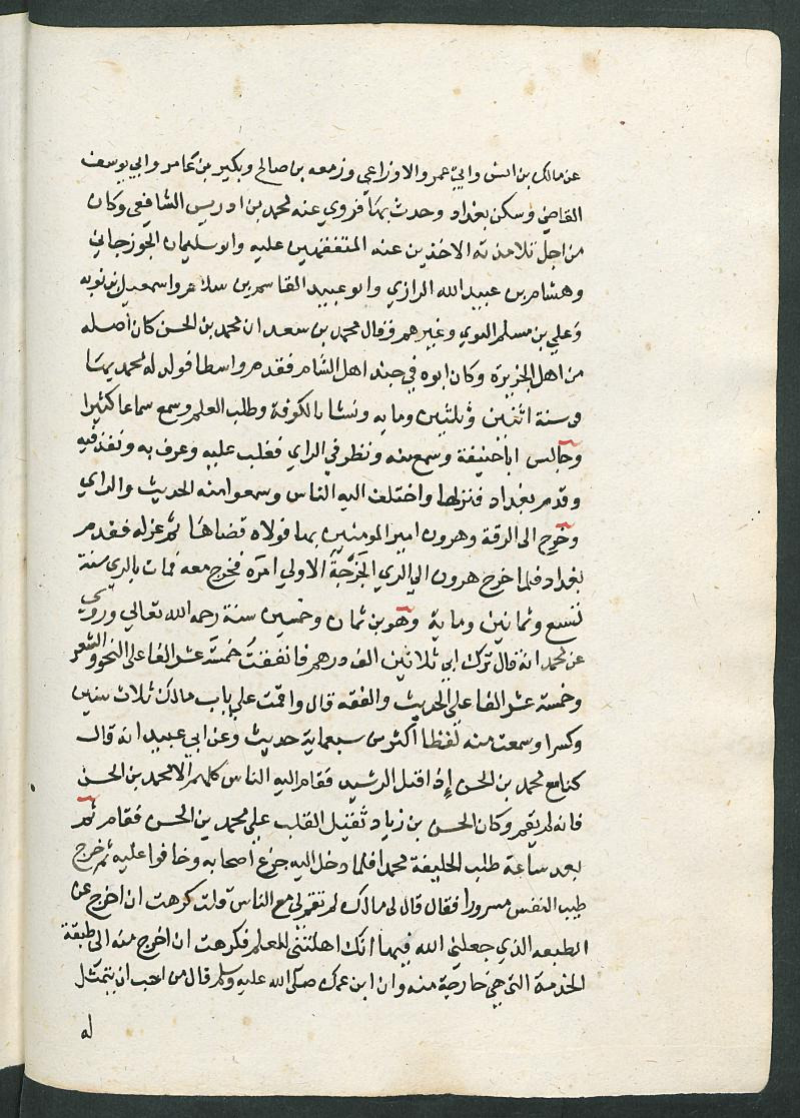 عن مالك بن انس وابي عمر والاوزاعي وزمعه بن صالح وبكير بن عامر وابي يوسف
القاضي وسكن بغداد وحدث بها فروي عنه محمد بن ادريس الشافعي وكان
من اجل تلامذته الاخذين عنه المتفقهين عليه وابو سليمان الجوزجاني
وهشام بن عبيد الله الرازي وابو عبيد القاسم بن سلام واسمعيل بن توبه
وعلي بن مسلم الطوسي وغيرهم وقال محمد بن سعد ان محمد بن الحسن كان اصله
من اهل الجزيرة وكان ابوه في جند اهل الشام فقدم واسطا فولد له محمد بها
في سنة اثنين وثلثين وماية ونشا بالكوفة وطلب العلم وسمع سماعا كثيرا
وجالس ابا حنيفة وسمع منه ونظر في الراي فغلب عليه وعرف به ونفذ فيه
وقدم بغداد فنزلها واختلف اليه الناس وسمعوا منه الحديث والراي
وخرج الى الرقة وهرون امير المومنين بها فولاه قضاها ثم عزله فقدم
بغداد فلما خرج هرون الي الري الخرجة الاولي امره فخرج معه فمات بالري سنة
تسع وثمانين وماية وهو بن ثمان وخمسين سنة رحمه الله تعالي وروي
عن محمد انه قال ترك ابي ثلاثين الف درهم فانفقت خمسة عشر الفا على النحو والشعر
وخمسة عشر الفا علي الحديث والفقه قال واقمت علي باب مالك ثلاث سنين
وكسرا وسمعت منه لفظا اكثر من سبعماية حديث وعن ابي عبيد انه قال
كنا مع محمد بن الحسن إذ اقبل الرشيد فقام اليه الناس كلهم الا محمد بن الحسن
فانه لم يقم وكان الحسن بن زياد ثقيل القلب علي محمد بن الحسن فقام ثم
بعد ساعة طلب الخليفة محمدا فلما دخل اليه جزع اصحابه وخافوا عليه ثم خرج
طيب النفس مسرورا فقال قال لي مالك لم تقم لي مع الناس قلت كرهت ان اخرج عن
الطبقه الذي جعلني الله فيها انك اهلتني للعلم فكرهت ان اخرج منه الى طبقة
الخدمة التي هي خارجة منه وان ابن عمك صلى الله عليه وسلم قال من احب ان يتمثل
له